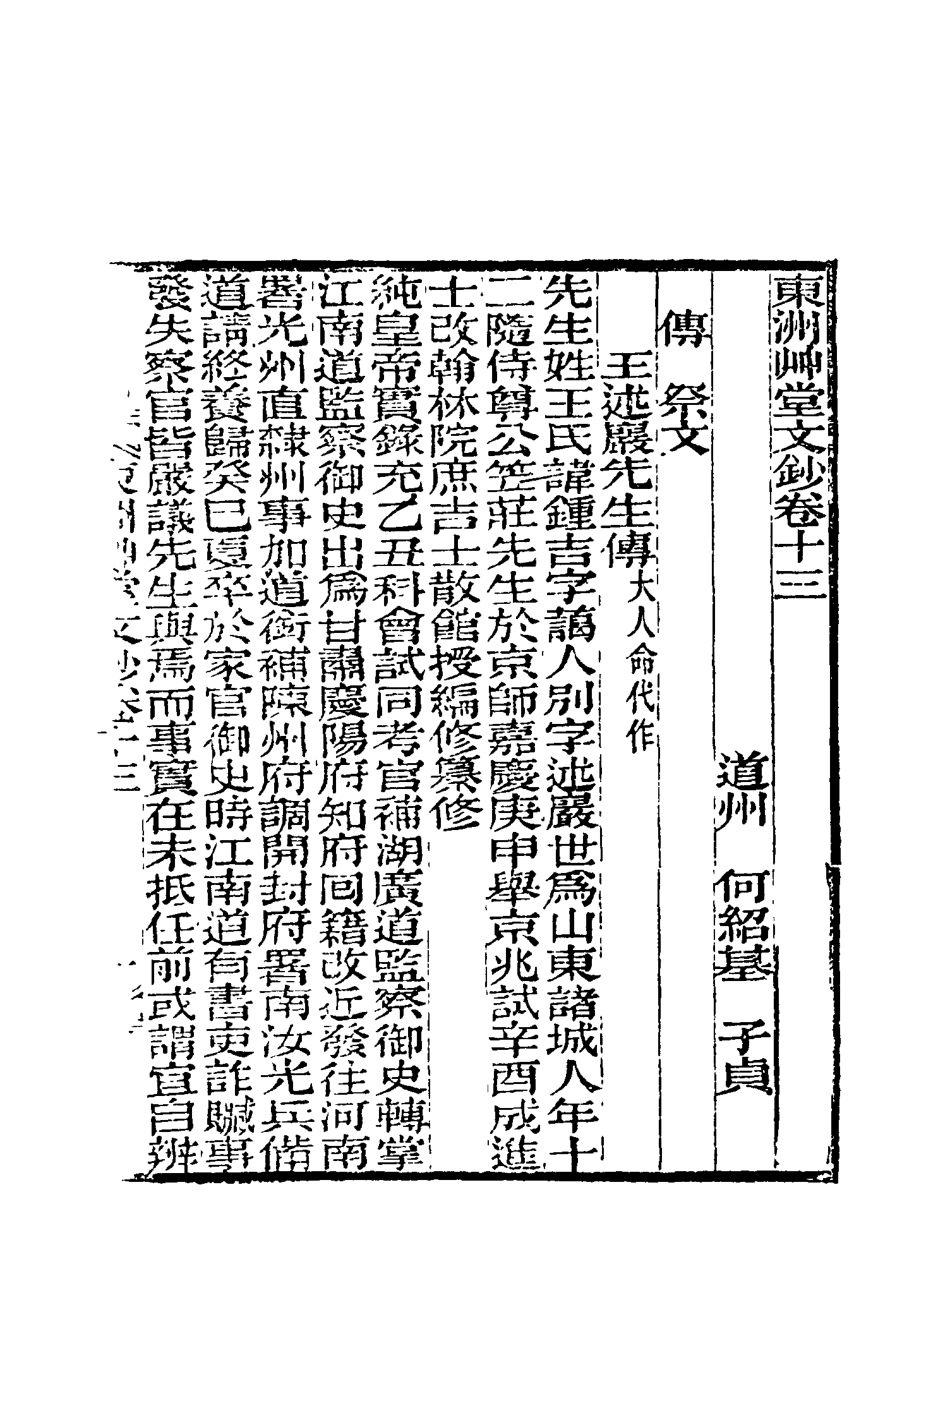 東洲艸堂文鈔卷十三
道州　何紹基　子貞
傳　祭文
王述巖先生傳大人命代作
先生姓王氏諱鍾吉字藹人別字述巖世爲山東諸城人年十
二隨侍尊公笠莊先生於京師嘉慶庚申舉京兆試辛酉成進
士改翰林院庶吉士散館授編修纂修
純皇帝實錄充乙丑科會試同考官補湖廣道監察御史轉掌
江南道監察御史出爲甘肅慶陽府知府回籍改近發往河南
署光州直隸州事加道銜補陳州府調開封府署南汝光兵備
道請終養歸癸巳夏卒於家官御史時江南道有書吏詐贓事
發失察官皆嚴議先生與焉而事實在未抵任前或謂宜自辨
東洲艸堂文鈔卷十三